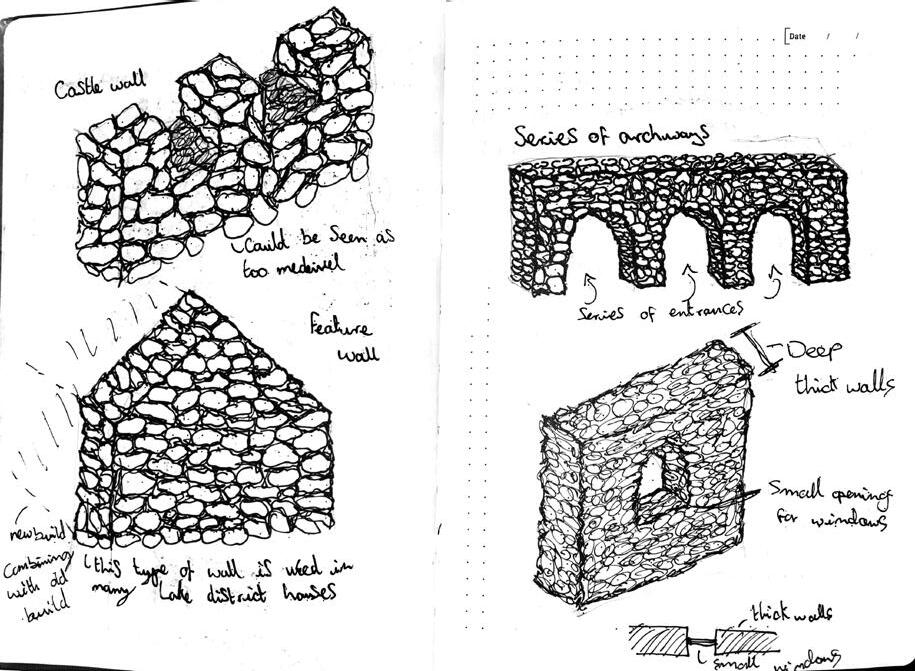 Castle wall
Could be Seen as
too medeivel
Feature
wall
new build
Combining
with old
build
this type of wall is used in
many Lake district houses
Date / /
Series of archways
Series of entrances
Deep
thick walls
Small openings
for windows
thick walls
small windows